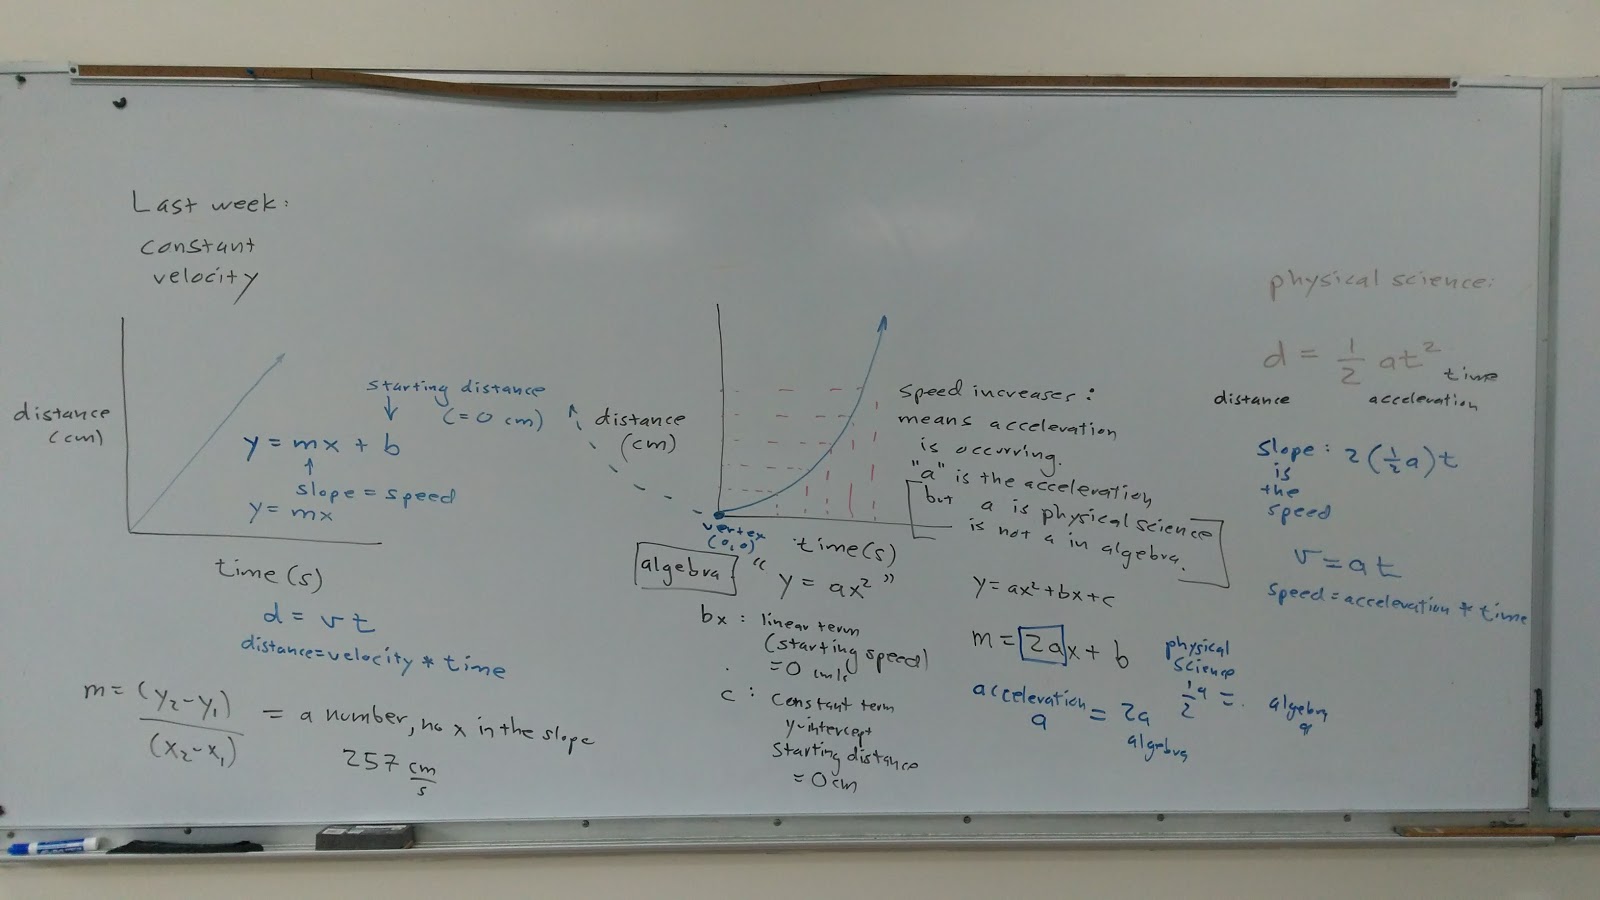 Last week:
constant
velocity
distance
(cm)
starting distance
(=0 cm)
y = mx + b
slope = speed
y = mx
time (s)
d = vt
distance=velocity * time
m = (y₂-y₁)
(x₂-x₁)
= a number, no x in the slope
257 cm
s
distance
(cm)
vertex
(0,0)
time(s)
algebra
"y = ax²"
bx : linear term
(starting speed)
=0 cm/s
c : constant term
y-intercept
starting distance
= 0 cm
speed increases:
means acceleration
is occurring.
"a" is the acceleration
but a is physical science
is not a in algebra.
y = ax² + bx + c
m = 2ax + b
acceleration
a = 2a
algebra
physical
science
½ a =
algebra
a
physical science:
d = ½ at²
time
distance
acceleration
slope : 2(½a)t
is
the
speed
v = at
speed=acceleration * time